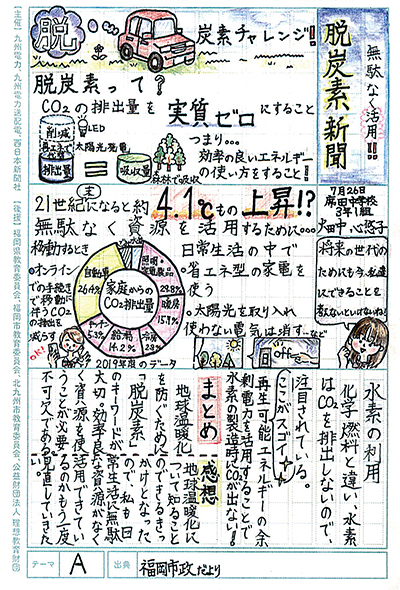 無駄なく活用!!
脱炭素新聞
7月26日
3年1組
脱
炭素チャレンジ!!
脱炭素って?
CO₂の排出量を実質ゼロにすること
削減
再エネで
排出量
LED
太陽光発電
吸収量
森林で吸収
つまり…
効率の良いエネルギー
の使い方をすること!
21世紀になると約4.1℃もの上昇!?
無駄なく資源を活用するために…
移動するとき
・オンライン
での手続き
で移動に
伴うCO₂
の排出を
減らす
OK!
家庭からの
CO₂排出量
自動車
26.4%
照明・
家電製品
29.8%
暖房
15.9%
給湯
14.2%
キッチン
5.3%
冷房
2019年度のデータ
日常生活の中で
・省エネ型の家電を
使う
・太陽光を取り入れ
使わない電気は消す…など
office
将来の世代の
ためにも今、私達
にできることを
考えないといけないね!
水素の利用
化学燃料と違い、水素
はCO₂を排出しないので、
注目されている。
ここがスゴイ
再生可能エネルギーの余
剰電力を活用することで
水素の製造時にCO₂が出ない!
まとめ
感想
地球温暖化
を防ぐために
「脱炭素」
のキーワードが
大切。効率良く
資源を使
うことが必要
不可欠である。
地球温暖化に
ついて知ること
のできるきっ
かけとなった
ので、私も日
常生活に無駄
な資源がなく
活用できてい
るのかもう一度
見直していきた
い。
テーマ A
出典 福岡市政だより
【主催】九州電力、九州電力送配電、西日本新聞社 【後援】福岡県教育委員会、福岡市教育委員会、北九州市教育委員会、公益財団法人 理想教育財団